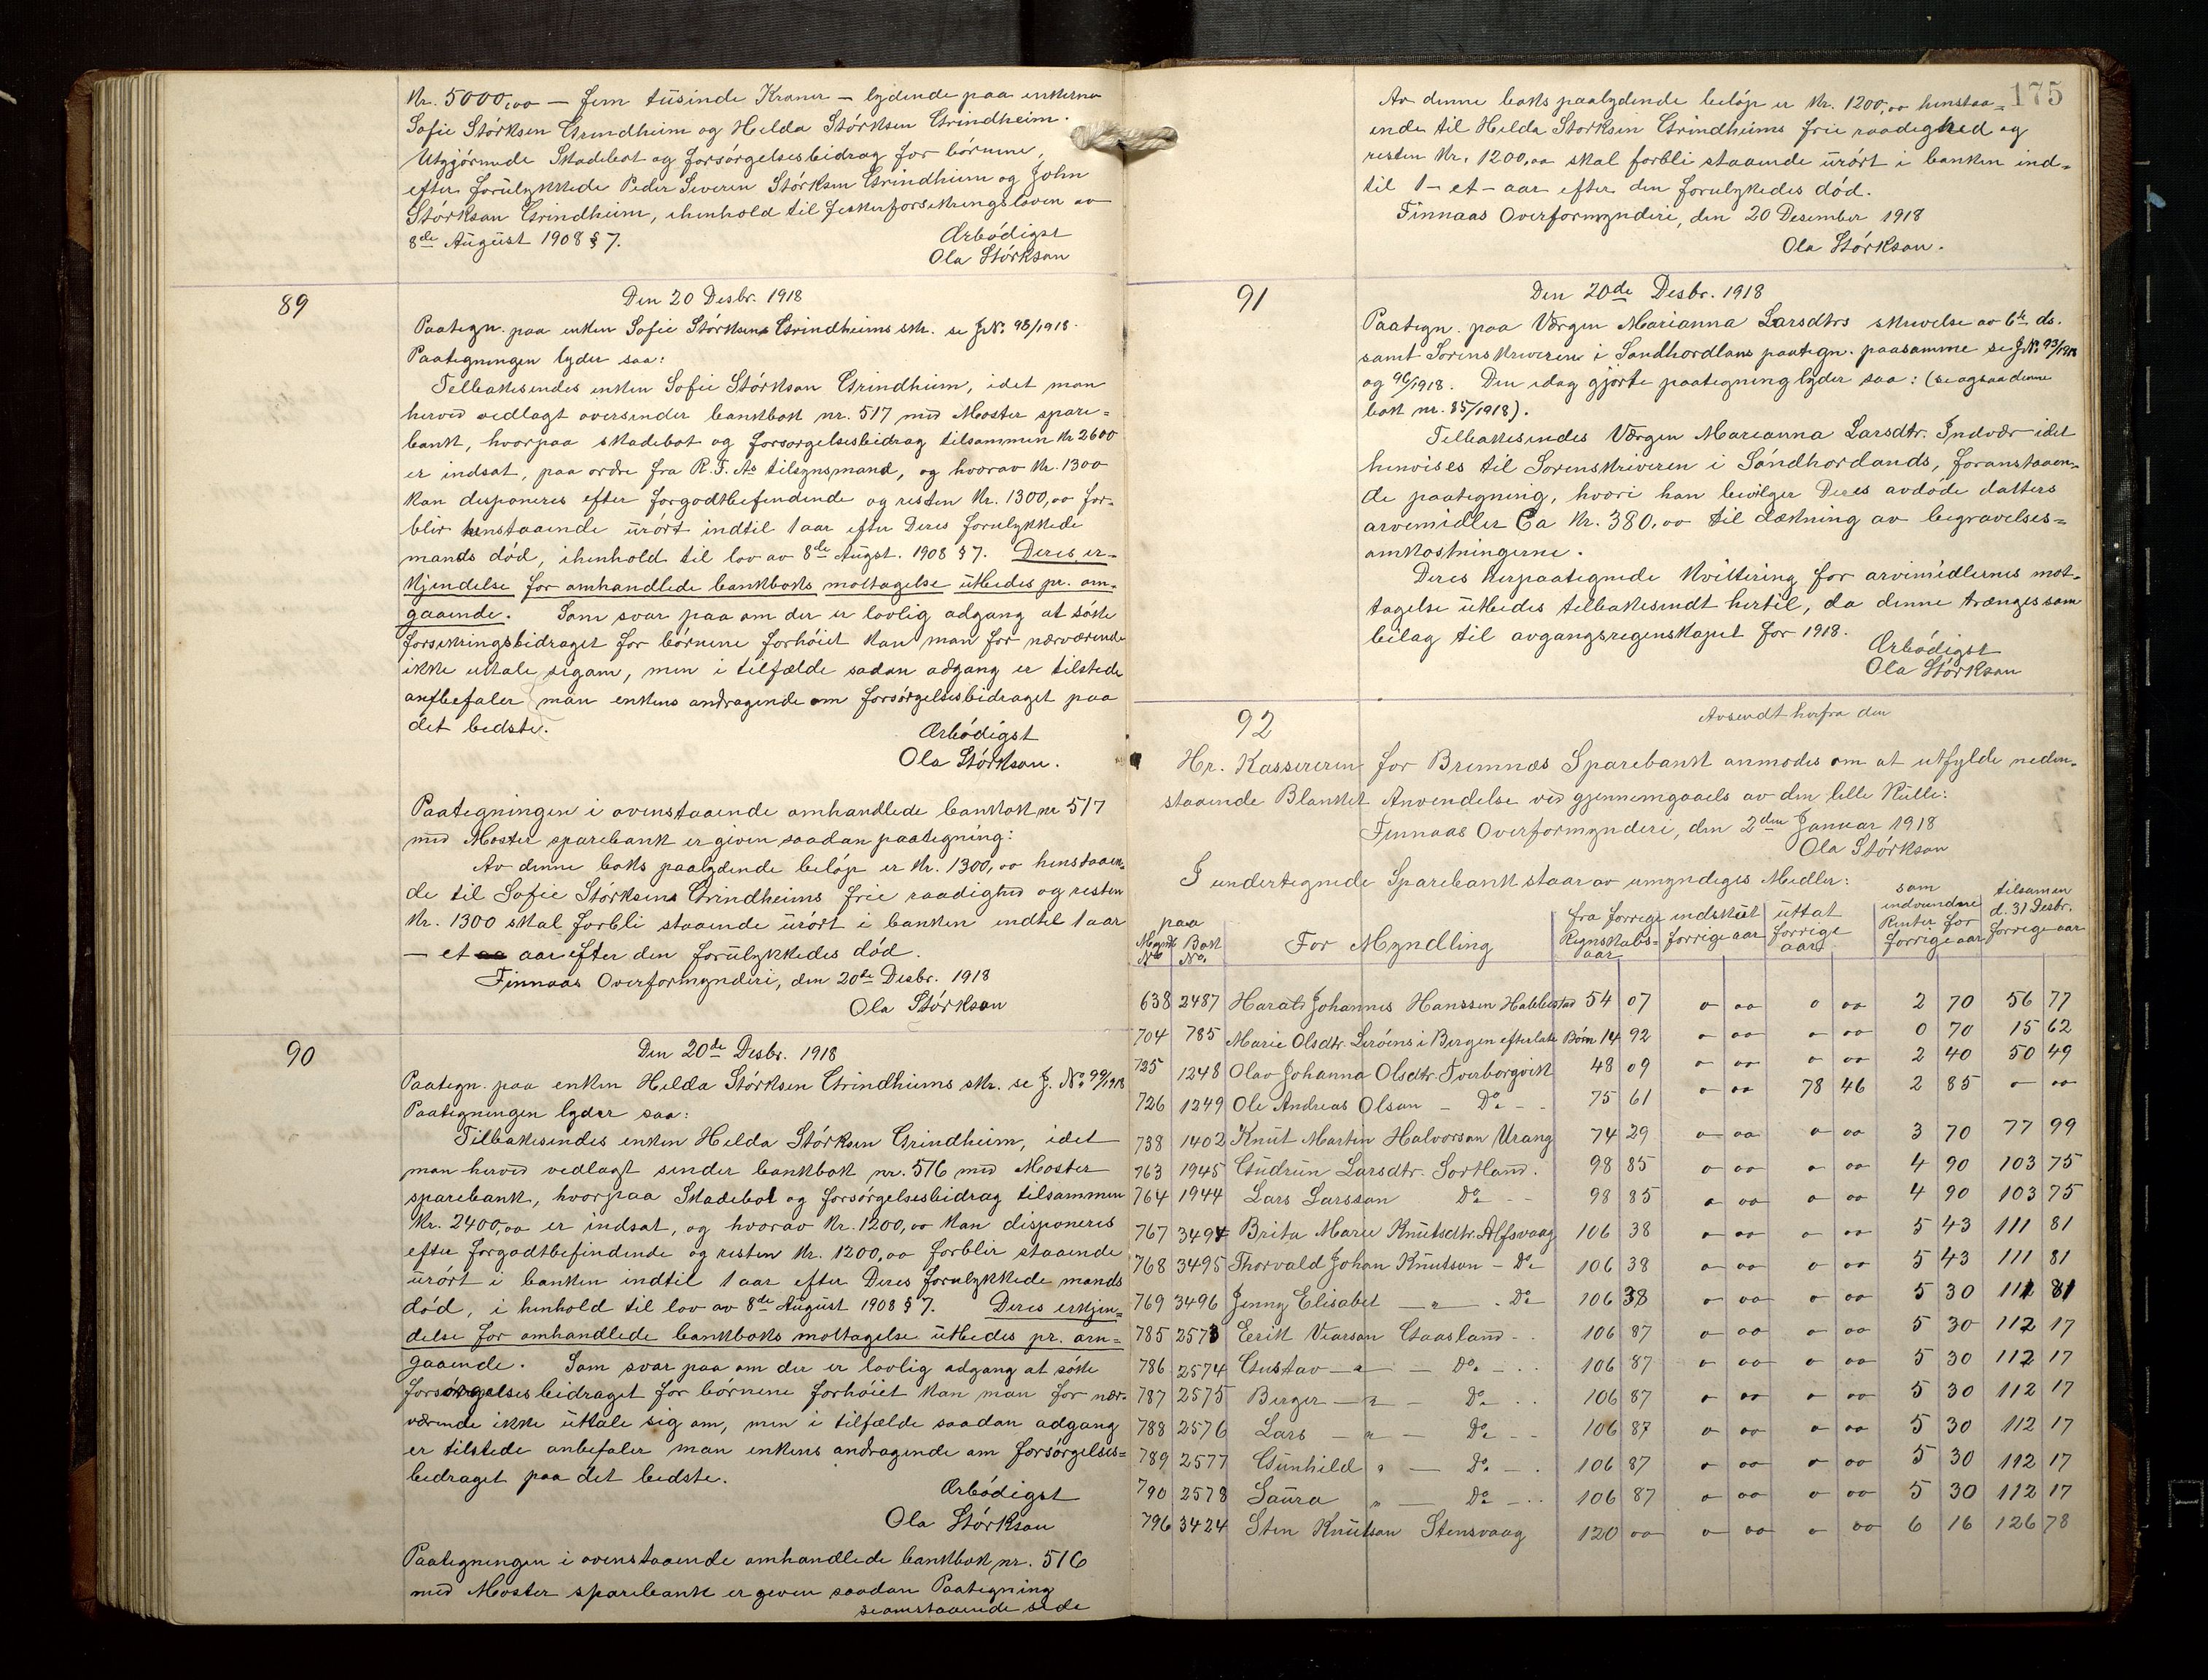 Kr. 5000,00 — fem tusinde Kroner — lydende paa enkerne
Sofie Størksen Grindheim og Helda Størksen Grindheim.
Utgjørende Skadebot og forsørgelsesbidrag for børnene,
efter forulykkede Peder Severin Størksen Grindheim og John
Størkson Grindheim, ihenhold til fiskerforsikringsloven av
8de August 1908 § 7.
Ærbødigst
Ola Størkson
89
Den 20 Desbr. 1918
Paategn. paa enken Sofie Størksens Grindheims skr. se J.No. 98/1918.
Paategningen lyder saa:
Telbakesendes enken Sofie Størkson Grindheim, idet man
herved vedlagt oversender bankbok nr. 517 med Moster spare=
bank, hvorpaa skadebot og forsorgelsesbeidrag tilsammen Kr 2600
er indsat, paa ordre fra R.F.As tilsynsmand, og hvorav Kr. 1300
kan disponeres efter forgodtbefindende og resten Kr. 1300,00 for-
blir henstaaende urørt indtil 1 aar efter Deres forulykkede
mands død, ihenhold til lov av 8de Augst. 1908 § 7. Deres er-
kjendelse for omhandlede bankboks mottagelse utbedes pr. om-
gaaende. Som svar paa om der er lovlig adgang at søke
forsikringsbidraget for børnene forhøiet kan man for nærværende
ikke uttale sigom, men i tilfælde sadan adgang er tilstede
anfbefaler man enkens andragende om forsørgelsesbidraget paa
det bedste.
Ærbødigst
Ola Størkson.
Paategningen i ovenstaaende omhandlede bankbok nr 517
med Moster sparebank er given saadan paategning:
Av denne boks paalydende beløp er Kr. 1300,00 henstaaen-
de til Sofie Størksens Grindheims frie raadighed og resten
Kr. 1300 skal forbli staaende urørt i banken indtil 1 aar
— et aar efter den forulykkedes død.
Finnaas Overformynderi, den 20de Desbr. 1918
Ola Størkson
90
Den 20de Desbr. 1918
Paategn. paa enken Helda Størksen Grindheims skr. se J. No. 99/1918
Paategningen lyder saa:
Tilbakesendes enken Helda Størksen Grindheim, idet
man herved vedlagt sender bankbok nr. 516 med Moster
sparebank, hvorpaa Skadebot og forsørgelsesbidrag tilsammen
Kr. 2400,00 er indsat, og hvorav Kr. 1200,00 kan disponeres
efter forgodtbefindende og resten Kr. 1200,00 forblir staaende
urørt i banken indtil 1 aar efter Deres forulykkede mands
død, i henhold til lov av 8de August 1908 § 7. Deres erkjen-
delse for omhandlede bankboks mottagelse utbedes pr. om=
gaaende. Som svar paa om der er lovlig adgang at søke
forsørgelsesbidraget for børnene forhøiet kan man for nær-
værende ikke uttale sig om, men i tilfælde saadan adgang
er tilstede anbefaler man enkens andragende om forsørgelses=
bedraget paa det bedste.
Ærbødigst
Ola Størkson
Paategningen i ovenstaaende omhandlede bankbok nr. 516
med Moster sparebank er given saadan Paategning
se omstaaende side
175
Av denne boks paalydende beløp er Kr. 1200,00 henstaa=
ende til Helda Størksen Grindheims frie raadighed og
resten Kr. 1200,00 skal forbli staaende urørt i banken ind=
til 1 — et — aar efter den forulykedes død.
Finnaas Overformynderi, den 20 Desember 1918
Ola Størkson.
91
Den 20de Desbr. 1918
Paategn. paa Værgen Marianna Larsdtrs skrivelse av 6te ds.
samt Sorenskriveren i Søndhordlans paategn. paasamme se J.No. 93/1918
og 96/1918. Den idag gjorte paategning lyder saa: (se ogsaa denne
bok nr. 85/1918).
Telbakesendes Værgen Marianna Larsdtr. Indvær idet
henvises til Sorenskriveren i Søndhordlands, foranstaaen-
de paategning, hvori han bevilger Deres avdøde datters
arvemidler Ca Kr. 380,00 til dækning av begravelses=
omkostningerne.
Deres herpaategnede Kvittering for arvemidlernes mot-
tagelse utbedes telbakesendt hertil, da denne trænges som
bilag til avgangsregenskapet for 1918.
Ærbødigst
Ola Størkson
92
Avsendt herfra den
Hr. Kassereren for Bremnæs Sparebank anmodes om at utfylde neden-
staaende Blanket Anvendelse ved gjennemgaaels av den lille Rulle:
Finnaas Overformynderi, den 2den Januar 1918
Ola Størkson
I undertegnede Sparebank staar av umyndiges Medler:
paa Mynd. No. Bok No. For Myndling fra forrige Regnskabs=aar indskut forrige aar uttat forrige aar som indvundne Renter for forrige aar tilsamen d. 31 Desbr. forrige aar
638 2487 Harald Johannes Hanssen Habbestad 54 07 0 00 0 00 2 70 56 77
704 785 Marie Olsdtr. Lerøens i Bergen efterlate Børn 14 92 0 00 0 00 0 70 15 62
725 1248 Olav Johanna Olsdtr. Tverborgvik 48 09 0 00 0 00 2 40 50 49
726 1249 Ole Andreas Olson — Do — 75 61 0 00 78 46 2 85 0 00
738 1402 Knut Martin Halvorson Urang 74 29 0 00 0 00 3 70 77 99
763 1945 Gudrun Larsdtr. Sortland. 98 85 0 00 0 00 4 90 103 75
764 1944 Lars Larsson Do — 98 85 0 00 0 00 4 90 103 75
767 3494 Brita Marie Knutsdtr. Alfsvaag 106 38 0 00 0 00 5 43 111 81
768 3495 Thorvald Johan Knutson — Do 106 38 0 00 0 00 5 43 111 81
769 3496 Jenny Elisabet — " — Do 106 38 0 00 0 00 5 30 111 81
785 2573 Eerik Viarson Gaasland 106 87 0 00 0 00 5 30 112 17
786 2574 Gustav — " — Do 106 87 0 00 0 00 5 30 112 17
787 2575 Berger — " — Do 106 87 0 00 0 00 5 30 112 17
788 2576 Lars — " — Do 106 87 0 00 0 00 5 30 112 17
789 2577 Gunhild " — Do 106 87 0 00 0 00 5 30 112 17
790 2578 Laura " — Do 106 87 0 00 0 00 5 30 112 17
796 3424 Sten Knutson Stensvaag 120 00 0 00 0 00 6 16 126 78